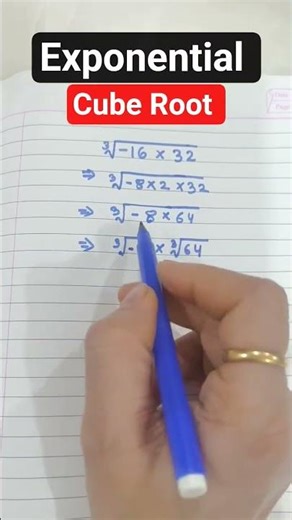 Exponential
Cube Root
∛-16 × 32
⇒ ∛-8 × 2 × 32
⇒ ∛-8 × 64
⇒ ∛- × ∛64